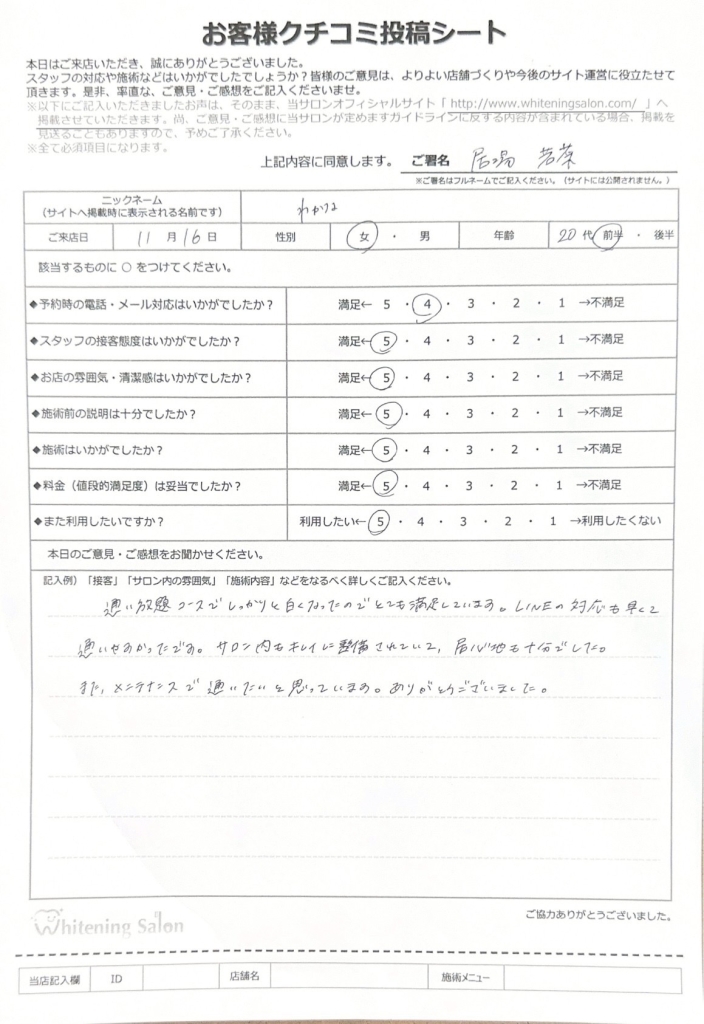 お客様クチコミ投稿シート
本日はご来店いただき、誠にありがとうございました。
スタッフの対応や施術などはいかがでしたでしょうか？皆様のご意見は、よりよい店舗づくりや今後のサイト運営に役立たせて
頂きます。是非、率直な、ご意見・ご感想をご記入くださいませ。
※以下にご記入いただきましたお声は、そのまま、当サロンオフィシャルサイト「 http://www.whiteningsalon.com/ 」へ
掲載させていただきます。尚、ご意見・ご感想に当サロンが定めますガイドラインに反する内容が含まれている場合、掲載を
見送ることもありますので、予めご了承ください。
※全て必須項目になります。
上記内容に同意します。 ご署名 居場 若菜
※ご署名はフルネームでご記入ください。（サイトには公開されません。）
ニックネーム
（サイトへ掲載時に表示される名前です） わかな
ご来店日 11 月 16 日 性別 女 ・ 男 年齢 20 代 前半 ・ 後半
該当するものに ○ をつけてください。
◆予約時の電話・メール対応はいかがでしたか？ 満足← 5 ・ 4 ・ 3 ・ 2 ・ 1 →不満足
◆スタッフの接客態度はいかがでしたか？ 満足← 5 ・ 4 ・ 3 ・ 2 ・ 1 →不満足
◆お店の雰囲気・清潔感はいかがでしたか？ 満足← 5 ・ 4 ・ 3 ・ 2 ・ 1 →不満足
◆施術前の説明は十分でしたか？ 満足← 5 ・ 4 ・ 3 ・ 2 ・ 1 →不満足
◆施術はいかがでしたか？ 満足← 5 ・ 4 ・ 3 ・ 2 ・ 1 →不満足
◆料金（値段的満足度）は妥当でしたか？ 満足← 5 ・ 4 ・ 3 ・ 2 ・ 1 →不満足
◆また利用したいですか？ 利用したい← 5 ・ 4 ・ 3 ・ 2 ・ 1 →利用したくない
本日のご意見・ご感想をお聞かせください。
記入例）「接客」「サロン内の雰囲気」「施術内容」などをなるべく詳しくご記入ください。
通い放題コースでしっかりと白くなったのでとても満足しています。LINEの対応も早くて
通いやすかったです。サロン内もキレイに整備されていて、居心地も十分でした。
また、メンテナンスで通いたいと思っています。ありがとうございました。
Whitening Salon
ご協力ありがとうございました。
当店記入欄 ID 店舗名 施術メニュー